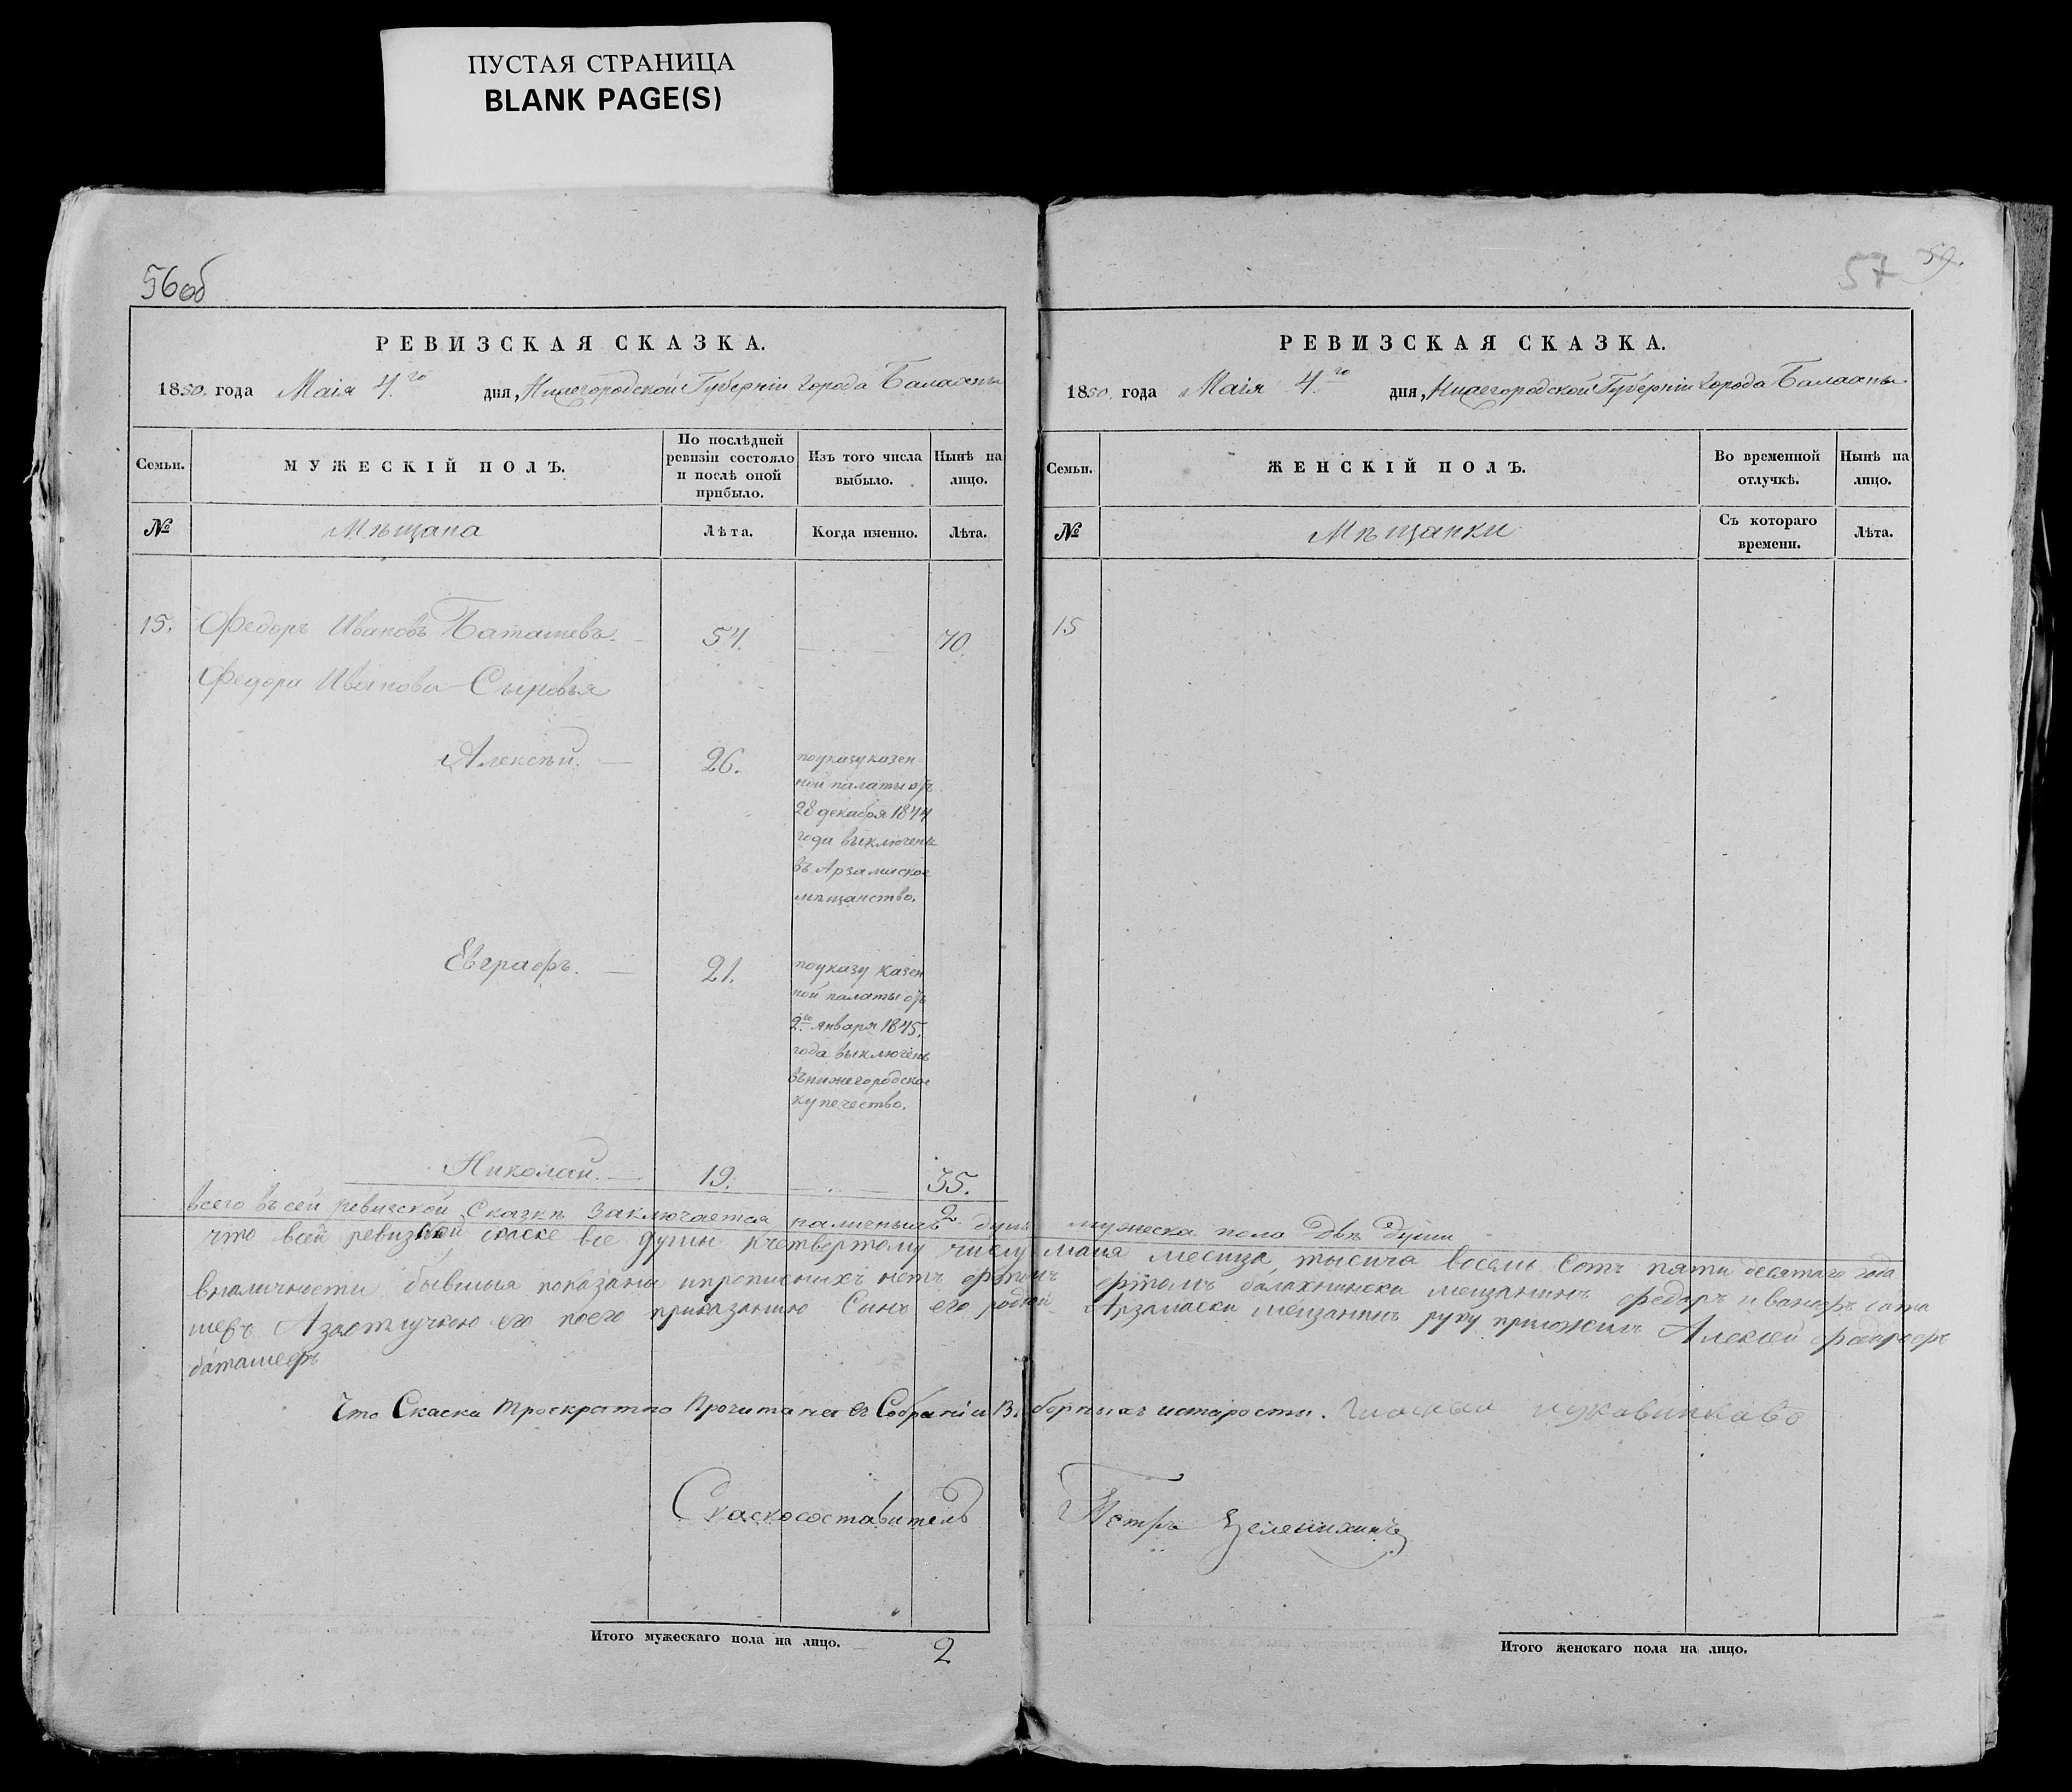 ПУСТАЯ СТРАНИЦА
BLANK PAGE(S)
56об
РЕВИЗСКАЯ СКАЗКА.
1850. года Маія 4.го дня, Нижегородской Губерніи города Балахны
Семьи.
МУЖЕСКІЙ ПОЛЪ.
По послѣдней ревизіи состояло и послѣ оной прибыло.
Изъ того числа выбыло.
Нынѣ на лицо.
№
Мѣщана
Лѣта.
Когда именно.
Лѣта.
15. Федоръ Ивановъ Баташевъ. 54. 70.
Федора Иванова Сыновья
Алексѣй. 26.
по указу казен
ной палаты отъ
28 декабря 1844
года выключенъ
въ Арзамаское
мѣщанство.
Евграфъ. 21.
по указу казен
ной палаты отъ
2го января 1845.
года выключенъ
въ нижегородское
купечество.
Николай. 19. 35.
2
всего въ сей ревизской Сказкѣ заключается наличныхъ душъ мужеска пола двѣ души
что всей ревизкой скаске все души кчетвертому числу маия месица, тысича восемь сотъ пяти десятаго года
вналичности бывшыя показаны ипрописныхъ нетъ фтомъ балахнински мещанинъ федаръ иванофъ бата
шевъ Азаотлучкою его поего приказанию Сынъ его родной Арзамаски мещанинъ руку приложилъ Алексей
баташефъ
Что Скаска троекратно Прочитана въ Собрании Выборныхъ истаросты.
Скаскосоставитель Петръ
Итого мужескаго пола на лицо. 2
57
59.
РЕВИЗСКАЯ СКАЗКА.
1850. года Маія 4.го дня, Нижегородской Губерніи города Балахны
Семьи.
ЖЕНСКІЙ ПОЛЪ.
Во временной отлучкѣ.
Нынѣ на лицо.
№
Мѣщанки
Съ котораго времени.
Лѣта.
15
Итого женскаго пола на лицо.